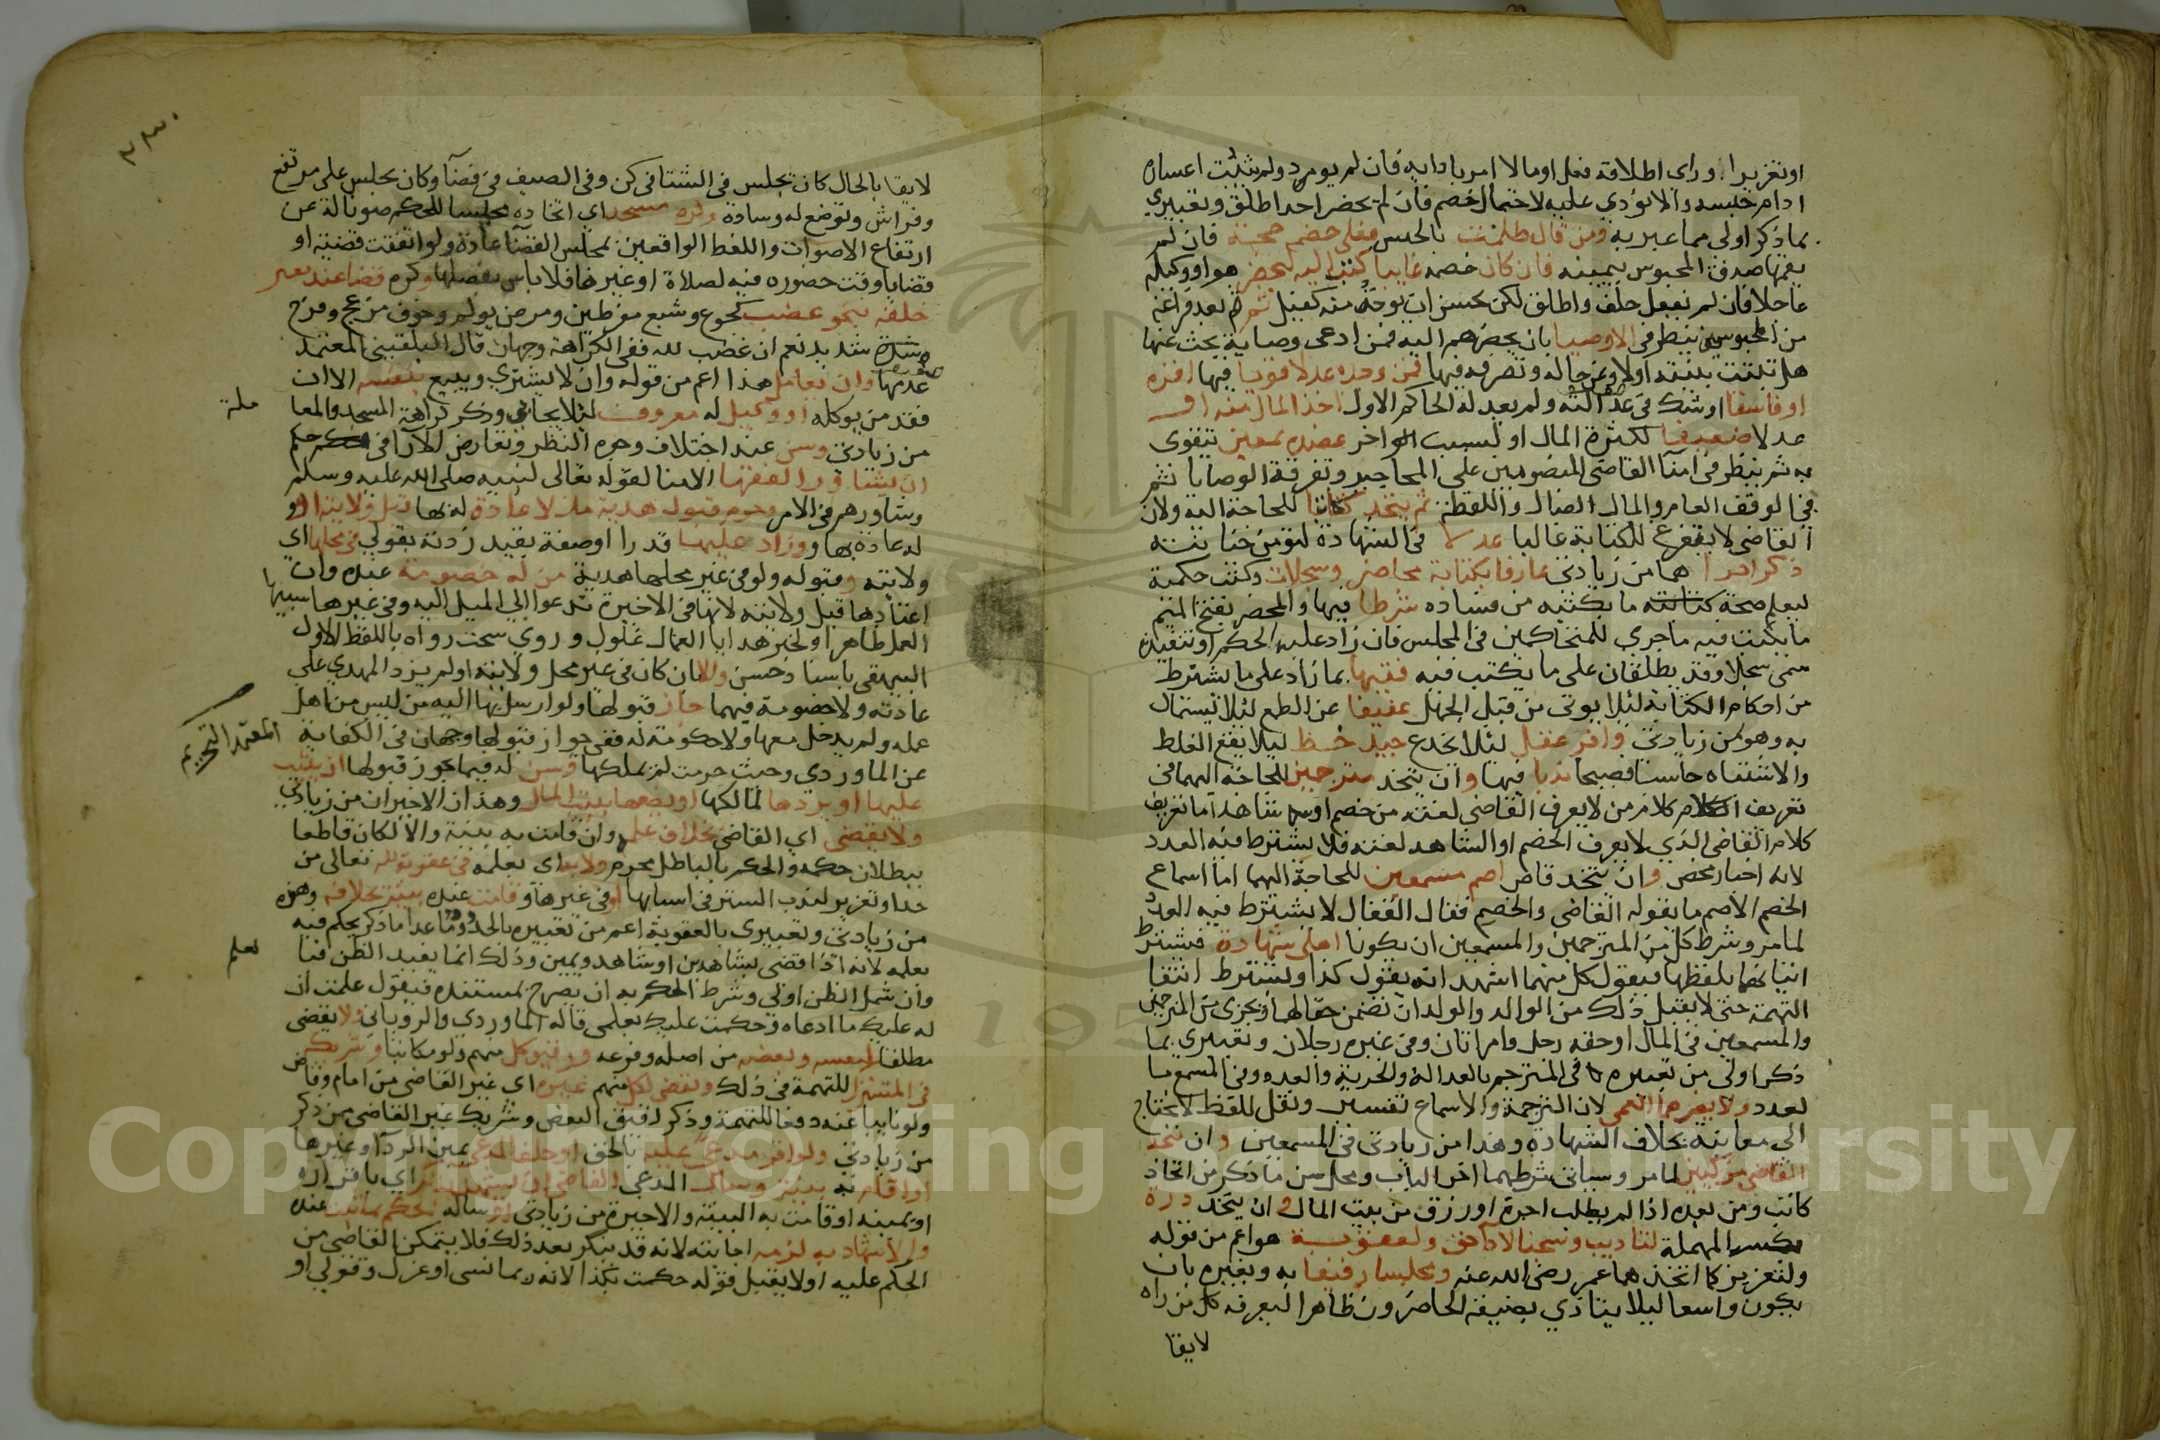 او تعزيرا وراى اطلاقه فعل او مالا امر بادايه فان لم يودِ ولم يثبت اعساره
ادام حبسه والا نودي عليه لاحتمال خصم فان لم يحضر احد اطلق وتعبيري
بما ذكر اولى مما عبر به ومن قال ظلمت بالحبس فعلى خصم حجة فان لم
يقمها صدق المحبوس بيمينه فان كان خصمه غايبا كتب اليه ليحضر هو او وكيله
عاجلا فان لم يفعل حلف واطلق لكن يحسن ان يوخذ منه كفيل ثم بعد فراغه
من المحبوسين ينظر في الاوصيا بان يحضرهم اليه فمن ادعى وصاية بحث عنها
هل تثبت ببينة اولا وعن حاله وتصرفه فيها فمن وجده عدلا قويا فيها اقره
او فاسقا او شك في عدالته ولم يعدله الحاكم الاول اخذ المال منه او
عدلا ضعيفا لكثرة المال او لسبب اخر عضده بمعين يتقوى
به ثم ينظر في امنا القاضي المنصوبين على المحاجير وتفرقة الوصايا ثم
في الوقف العام والمال الضال واللقطة ثم يتخذ كاتبا للحاجة اليه ولان
القاضي لا يتفرغ للكتابة غالبا عدلا في الشهادة لتؤمن خيانته
ذكرا حرا هما من زيادتي عارفا بكتابة محاضر وسجلات وكتب حكمية
ليعلم صحة ما يكتبه من فساده شرطا فيها والمحضر بفتح الميم
ما يكتب فيه ما جرى للمتحاكمين في المجلس فان زاد عليه الحكم او تنفيذه
سمى سجلا وقد يطلقان على ما يكتب فيه فقيها بما زاد على ما يشترط
من احكام الكتابة لئلا يوتى من قبل الجهل عفيفا عن الطمع لئلا يستمال
به وهو من زيادتي وافر عقل لئلا يخدع جيد خط ليلا يقع الغلط
والاشتباه حاسبا فصيحا ندبا فيها وان يتخذ مترجمين للحاجة اليهما في
تعريف كلام من لا يعرف القاضي لغته من خصم او شاهد اما تعريف
كلام القاضي الذي لا يعرف الخصم او الشاهد لغته فلا يشترط فيه العدد
لانه اخبار محض وان يتخذ قاض اصم مسمعين للحاجة اليهما اما اسماع
الخصم الاصم ما يقوله القاضي والخصم فقال القفال لا يشترط فيه العدد
لما مر وشرط كل من المترجمين والمسمعين ان يكونا اهلي شهادة فيشترط
اتيانهما بلفظها فيقول كل منهما اشهد انه يقول كذا ويشترط انتفا
التهمة حتى لا يقبل ذلك من الوالد والولد ان تضمن حقا لهما ويجزي من المترجمين
والمسمعين في المال او حقه رجل وامراتان وفي غيره رجلان وتعبيري بما
ذكر اولى من تعبيره في المترجم بالعدالة والحرية والعدد وفي المسمع بـ
لعدد ولا يضرهما العمى لان الترجمة والاسماع تفسير ونقل للفظ لا يحتاج
الى معاينة بخلاف الشهادة وهذا من زيادتي في المسمعين وان يتخذ
القاضي مزكيين لما مر وسياتي شرطهما اخر الباب ومحل سن ما ذكر من اتخاذ
كاتب ومن بعده اذا لم يطلب اجرة او رزق من بيت المال وان يتخذ درة
المهملة لتاديب وسجنا لاداء حق ولعقوبة هو اعم من قوله
ولتعزير كما اتخذهما عمر رضي الله عنه ومجلسا رفيقا به وبغيره بان
يكون واسعا ليلا يتاذى بضيقه الحاضرون ظاهرا ليعرفه كل من راه
لايقا
٢٣٠
لايقا بالحال كان يجلس في الشتا في كن وفي الصيف في فضا وكان يجلس على مرتفع
وفراش وتوضع له وسادة وكره مسجد اي اتخاذه مجلسا للحكم صونا له عن
ارتفاع الاصوات واللغط الواقعين بمجلس القضا عادة ولو اتفقت قضية او
قضايا وقت حضوره فيه لصلاة او غيرها فلا باس بفصلها وكره قضا عند تغير
خلقه بنحو غضب كجوع وشبع مفرطين ومرض مؤلم وخوف مزعج وفرح
شديد نعم ان غضب لله ففي الكراهة وجهان قال البلقيني المعتمد
عدمها وان يعامل هذا اعم من قوله وان لا يشتري ويبيع بنفسه الا ان
فقد من يوكله او وكيل له معروف لئلا يحابى وذكر كراهة المسجد والمعا
ملة
من زيادتي وسن عند اختلاف وجوه النظر وتعارض الارا في حكم
ان يشاور الفقها الامنا لقوله تعالى لنبيه صلى الله عليه وسلم
وشاورهم في الامر وحرم قبوله هدية من لا عادة له بها قبل ولايته او
له عادة بها وزاد عليها قدرا او صفة بقيد زدته بقولي في محلها اي
ولايته وقبوله ولو في غير محلها هدية من له خصومة عنده وان
اعتادها قبل ولايته لانها في الاخيرة تدعوا الى الميل اليه وفي غيرها سببها
العمل ظاهرا ولخبر هدايا العمال غلول وروي سحت رواه باللفظ الاول
البيهقي باسناد حسن والا بان كان في غير محل ولايته او لم يزد المهدي على
عادته ولا خصومة فيهما جاز قبولها ولو ارسل بها اليه من ليس من اهل
عمله ولم يدخل معها ولا حكومة له ففي جواز قبولها وجهان في الكفاية
المعتمد التحريم
عن الماوردي وحيث حرمت لم يملكها وسن له فيما يجوز قبولها ان يثيب
عليها او يردها لمالكها او يضعها ببيت المال وهذان الاخيران من زيادتي
ولا يقضي اي القاضي بخلاف علمه وان قامت به بينة والا لكان قاطعا
ببطلان حكمه والحكم بالباطل محرم ولا به اي بعلمه في عقوبة لله تعالى من
حد او تعزير لندب الستر في اسبابها او في غيرها وقامت عنده بينة بخلافه وهذه
من زيادتي وتعبيري بالعقوبة اعم من تعبيره بالحدود وما عدا ما ذكر يحكم فيه
بعلمه لانه اذا قضى بشاهدين او شاهد ويمين وذلك انما يفيد الظن فبا
لعلم
وان شمل الظن اولى وشرط الحكم به ان يصرح بمستنده فيقول علمت ان
له عليك ما ادعاه وحكمت عليك بعلمي قاله الماوردي والروياني ولا يقضي
مطلقا لنفسه وبعضه من اصله وفرعه ورقيق كل منهم ولو مكاتبا وشريكه
في المشترك للتهمة في ذلك ويقضي لكل منهم غيره اي غير القاضي من امام وقاض
ولو نايبا عنه دفعا للتهمة وذكر رقيق البعض وشريك غير القاضي ممن ذكر
من زيادتي ولو اقر مدعى عليه بالحق او حلف المدعي يمين الرد او غيرها
او اقام به بينة وسال المدعي القاضي ان يشهد اي باقراره
او يمينه او قامت به البينة والاخيرة من زيادتي او ساله الحكم بما ثبت عنده
والاشهاد به لزمه اجابته لانه قد ينكر بعد ذلك فلا يتمكن القاضي من
الحكم عليه او لا يقبل قوله حكمت بكذا لانه ربما نسي او عزل وقولي او
Copyright © King Saud University
195